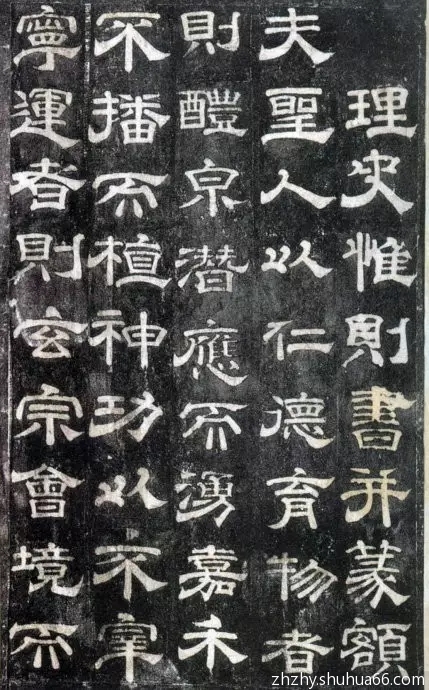 理史惟則書并篆額
夫聖人以仁德育物者
則醴泉潛應而湧嘉禾
不播而植神功以不宰
寧運者則玄宗會境而
zhzhy.shuhua66.com